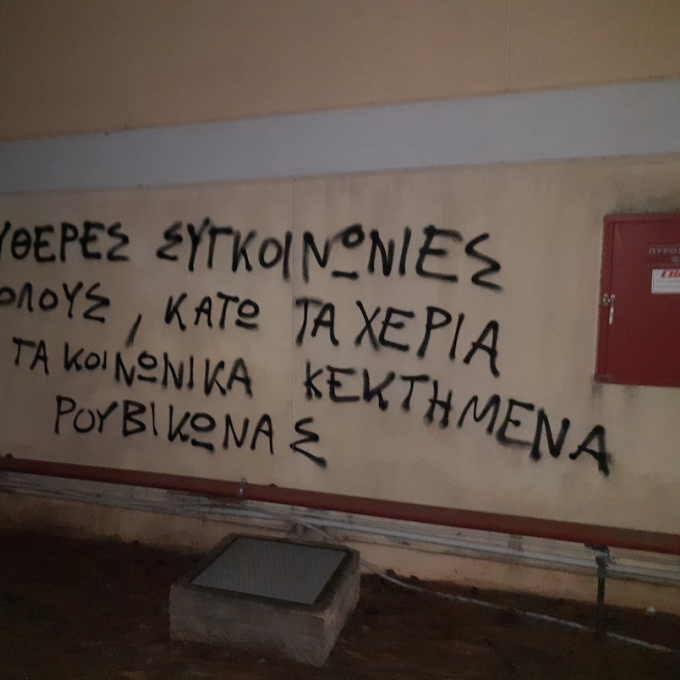 ΥΘΕΡΕΣ ΣΥΓΚΟΙΝΩΝΙΕΣ
ΟΛΟΥΣ, ΚΑΤΩ ΤΑ ΧΕΡΙΑ
ΤΑ ΚΟΙΝΩΝΙΚΑ ΚΕΚΤΗΜΕΝΑ
ΡΟΥΒΙΚΩΝΑΣ